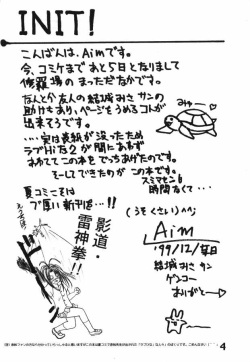 INIT!
こんばんは、Aimです。
今、コミケまであと5日となりまして
修羅場のまっただなかです。
なんとか友人の結城みさサンの
助けもあり、ページをうめるコトが
出来そうです。
‥‥実は表紙が没ったため
ラブHina2が間にあわず
あわててこの本をでっちあげたのです。
そーしてできたりがこの本です。
スミマセン!
時間なくて‥‥
(うそくさい)^^;
夏コミこそは
ブ厚い新刊を‥‥!!
影道・
雷神拳!!
みゅ〜
Aim
'99/12/某日
結城みさサン
ゲンコー
ありがと〜
4